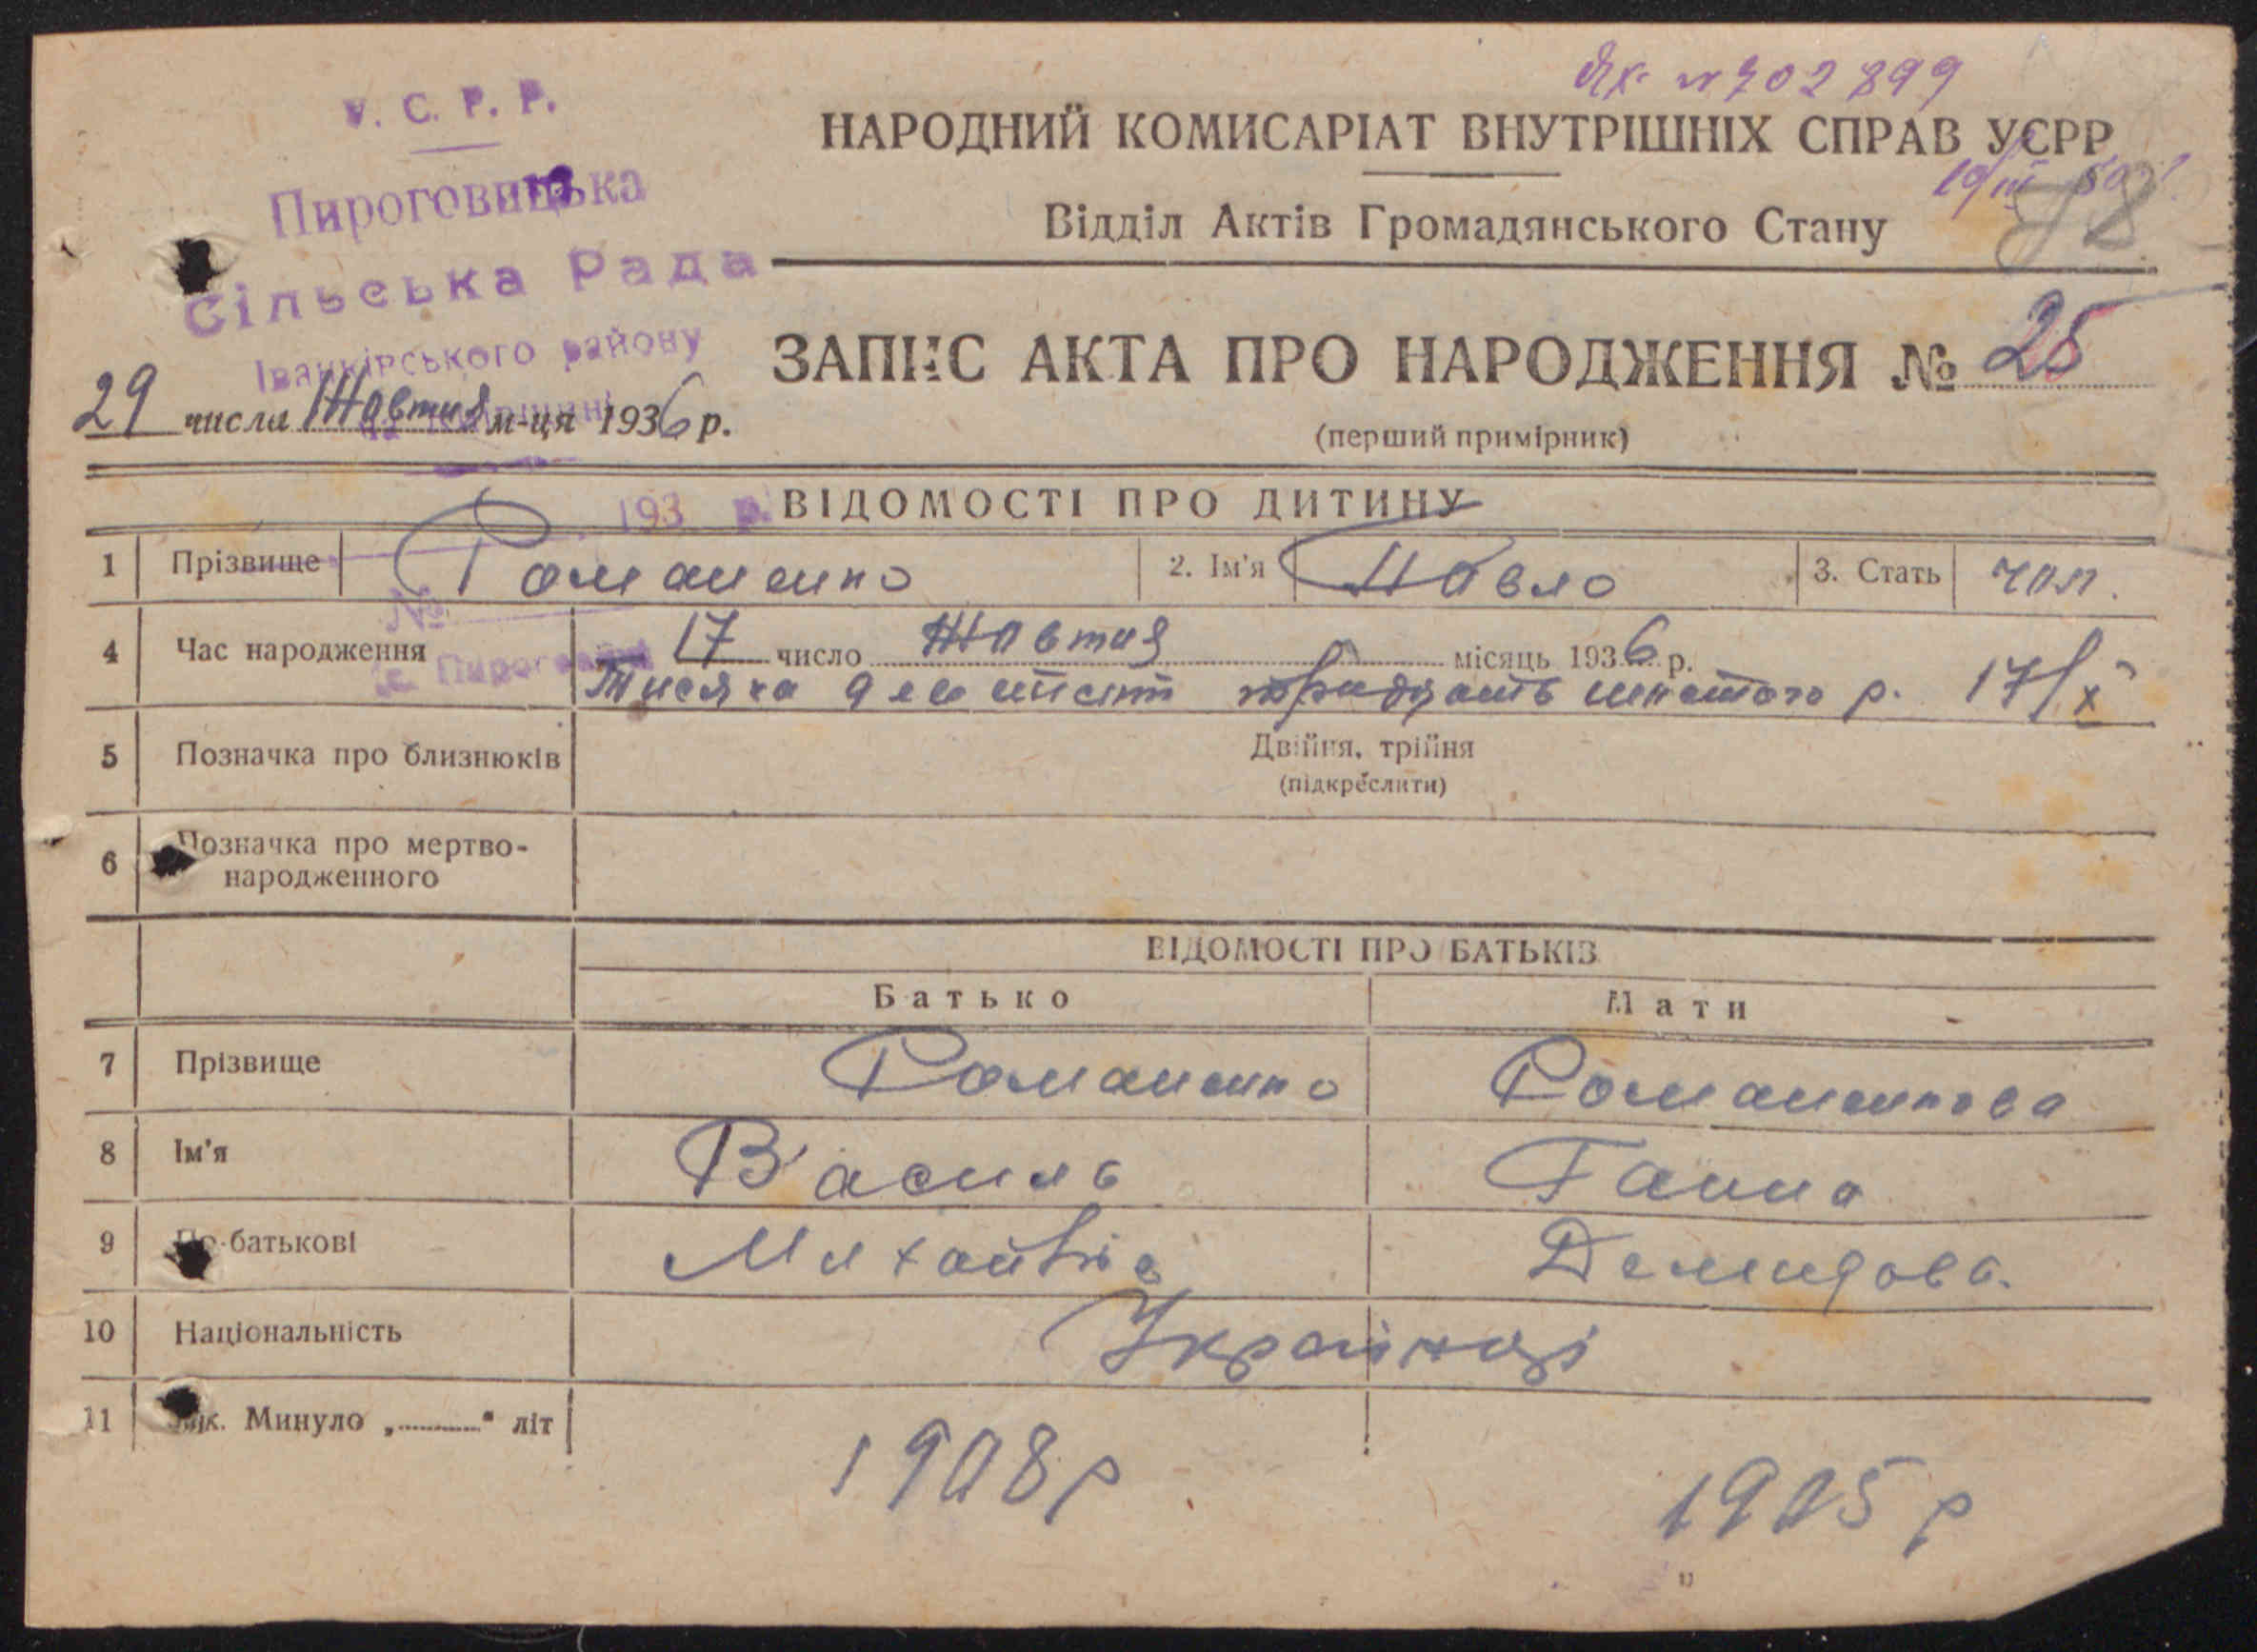 № 702 899
У. С. Р. Р.
НАРОДНИЙ КОМИСАРІАТ ВНУТРІШНІХ СПРАВ УСРР
Пироговицька
Відділ Актів Громадянського Стану
78
Сільська Рада
Іванківського району
ЗАПИС АКТА ПРО НАРОДЖЕННЯ № 25
29 числа Жовтня м-ця 1936 р.
(перший примірник)
193 р.
ВІДОМОСТІ ПРО ДИТИНУ
1 Прізвище Романенко 2. Ім'я Павло 3. Стать чол.
№
4 Час народження 17 число Жовтня місяць 1936 р.
Тисяча девятсот тридцать шостого р. 17/X
5 Позначка про близнюків Двійня, трійня
(підкреслити)
6 Позначка про мертво-
народженного
ВІДОМОСТІ ПРО БАТЬКІВ
Батько Мати
7 Прізвище Романенко Романенкова
8 Ім'я Василь Ганна
9 По-батькові Демидова.
10 Національність Українці
11 Вік. Минуло „..........“ літ 1908 р 1905 р